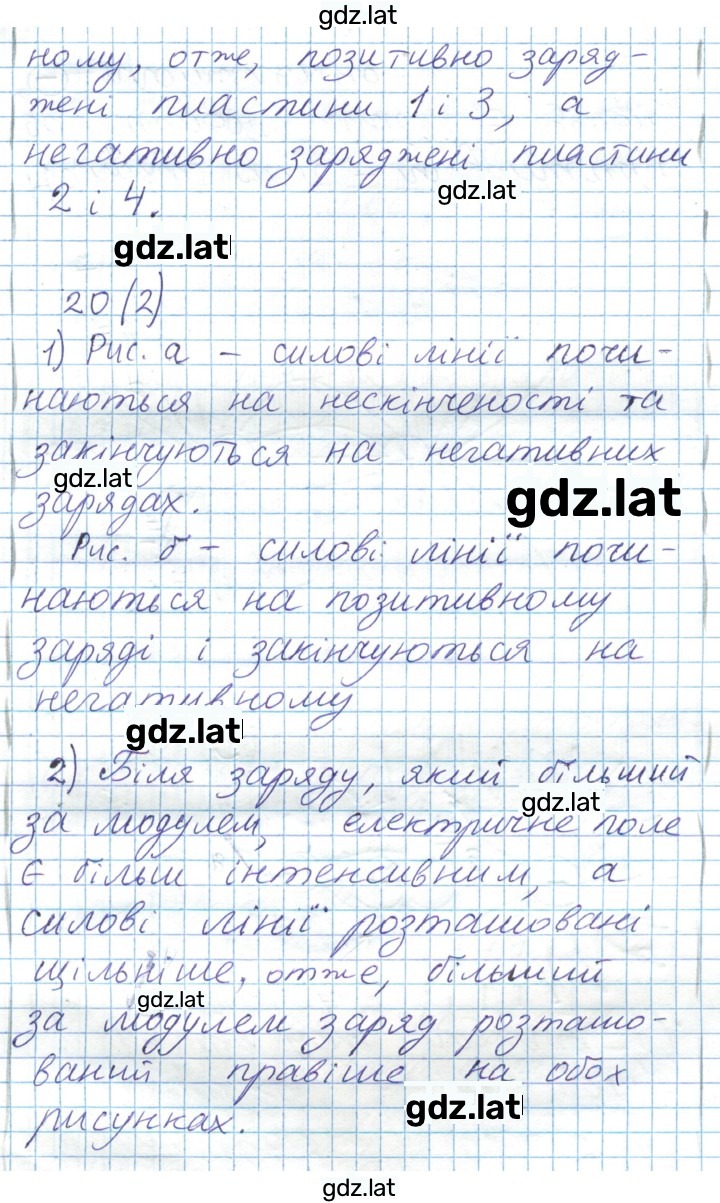 gdz.lat
ному, отже, позитивно заряд-
жені пластини 1 і 3, а
негативно заряджені пластини
gdz.lat
2 і 4.
gdz.lat
20 (2)
1) Рис. а – силові лінії почи-
наються на нескінченості та
закінчуються на негативних
gdz.lat
зарядах.
gdz.lat
Рис. б – силові лінії почи-
наються на позитивному
заряді і закінчуються на
негативному
gdz.lat
2) Біля заряду, який більший
gdz.lat
за модулем, електричне поле
є більш інтенсивним, а
силові лінії розташовані
щільніше, отже, більший
gdz.lat
за модулем заряд розташо-
ваний правіше на обох
gdz.lat
рисунках.
gdz.lat